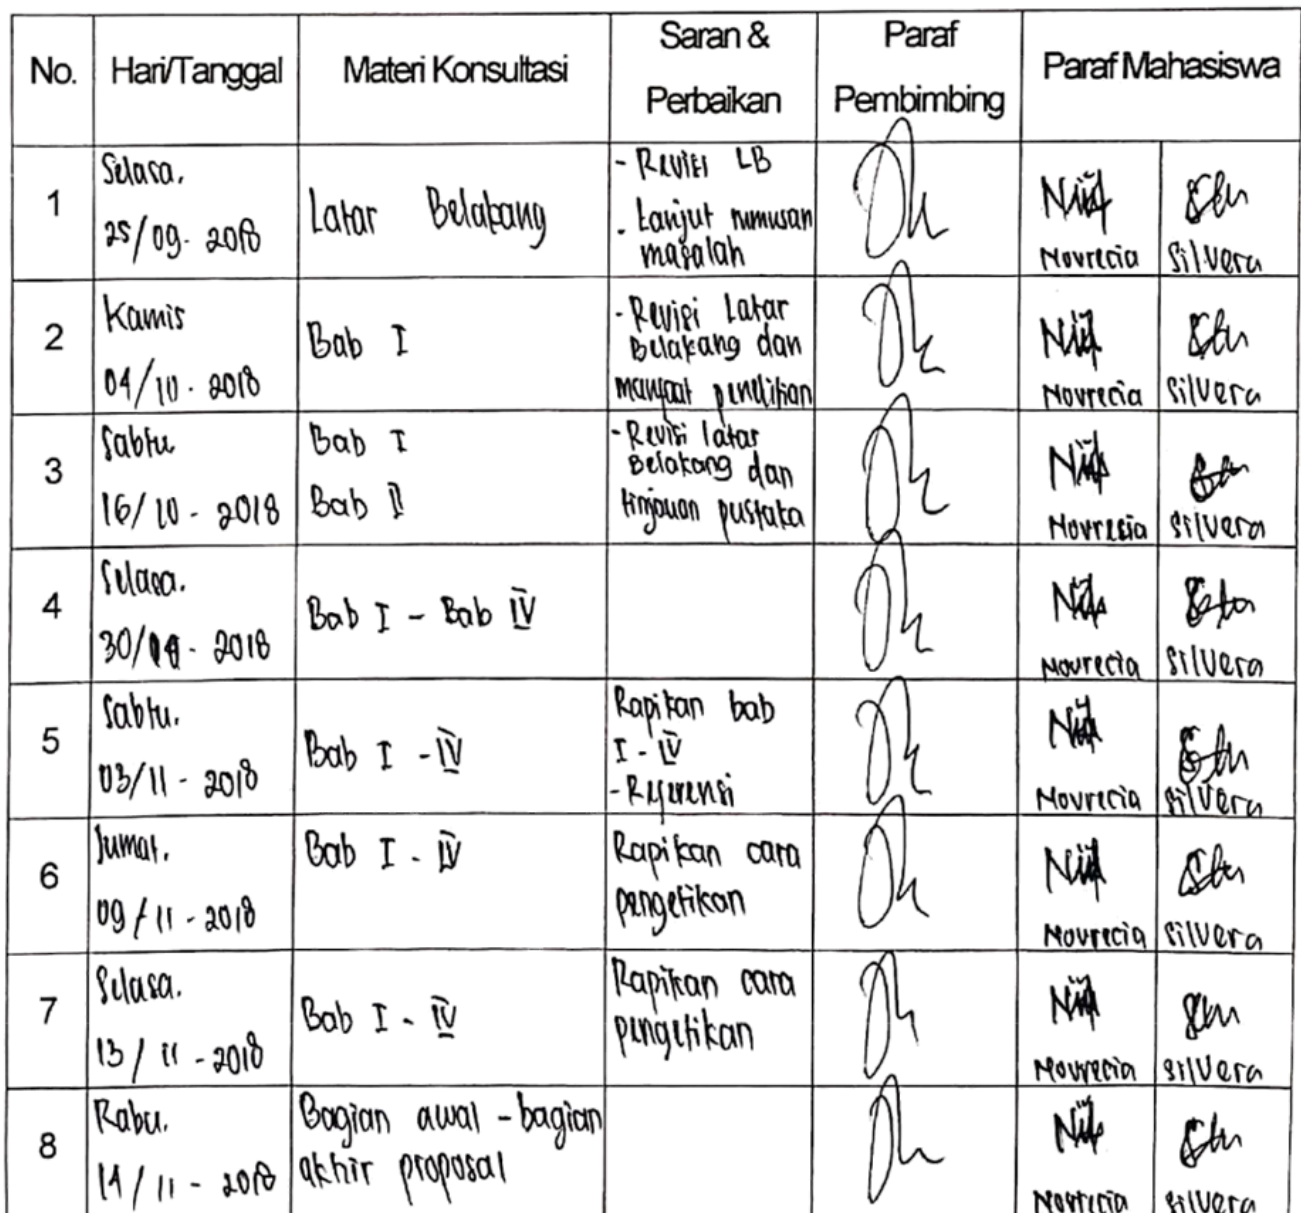 No. Hari/Tanggal Materi Konsultasi Saran & Perbaikan Paraf Pembimbing Paraf Mahasiswa
1 Selasa. 25/09-2018 Latar Belakang
- Revisi LB
- Lanjut rumusan
masalah
Novrecia Silvera
2 Kamis 04/10-2018 Bab I
- Revisi Latar
Belakang dan
manfaat penelitian
Novrecia Silvera
3 Sabtu 16/10-2018
Bab I
Bab II
- Revisi latar
Belakang dan
tinjauan pustaka
Novrecia Silvera
4 Selasa. 30/ - 2018 Bab I - Bab IV
Novrecia Silvera
5 Sabtu. 03/11-2018 Bab I - IV
Rapikan bab
I - IV
- Referensi
Novrecia Silvera
6 Jumat. 09/11-2018 Bab I - IV
Rapikan cara
pengetikan
Novrecia Silvera
7 Selasa. 13/11-2018 Bab I - IV
Rapikan cara
pengetikan
Novrecia Silvera
8 Rabu. 14/11-2018
Bagian awal - bagian
akhir proposal
Novrecia Silvera